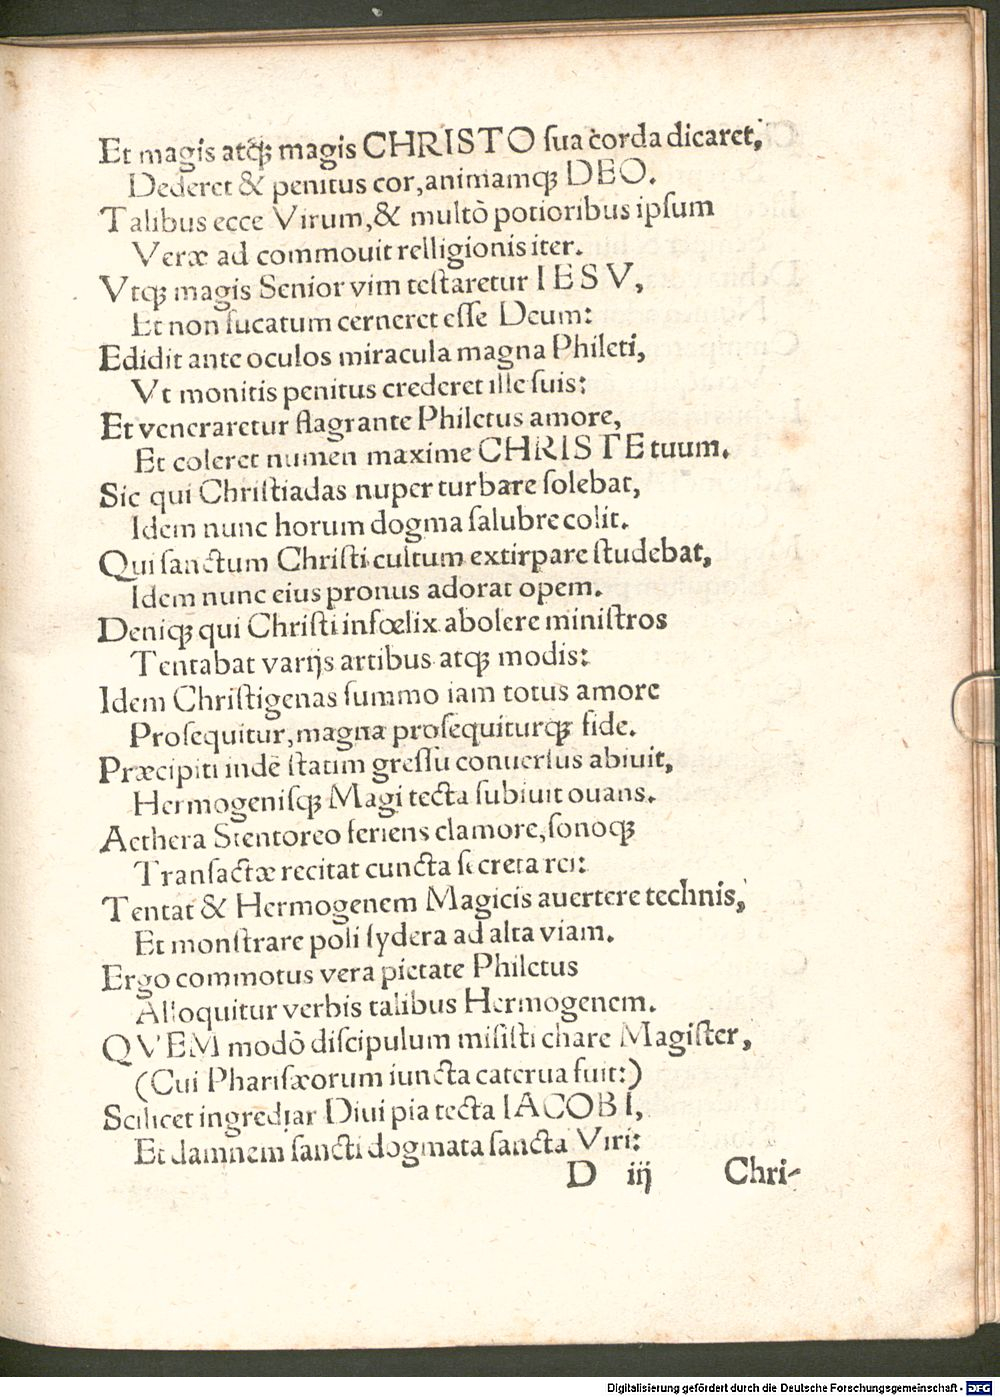 Et magis atq̃; magis CHRISTO sua corda dicaret,
Dederet & penitus cor, animamq; DEO.
Talibus ecce Virum, & multò potioribus ipsum
Veræ ad commouit relligionis iter.
Vtq; magis Senior vim testaretur IESV,
Et non fucatum cerneret esse Deum:
Edidit ante oculos miracula magna Phileti,
Vt monitis penitus crederet ille suis:
Et veneraretur flagrante Philetus amore,
Et coleret numen maxime CHRISTE tuum.
Sic qui Christiadas nuper turbare solebat,
Idem nunc horum dogma salubre colit.
Qui sanctum Christi cultum extirpare studebat,
Idem nunc eius pronus adorat opem.
Deniq; qui Christi infœlix abolere ministros
Tentabat varijs artibus atq; modis:
Idem Christigenas summo iam totus amore
Prosequitur, magna prosequiturq; fide.
Præcipiti inde statim gressu conuersus abiuit,
Hermogenisq; Magi tecta subiuit ouans.
Aethera Stentoreo feriens clamore, sonoq;
Transactæ recitat cuncta secreta rei:
Tentat & Hermogenem Magicis auertere technis,
Et monstrare poli sydera ad alta viam.
Ergo commotus vera pietate Philetus
Alloquitur verbis talibus Hermogenem.
QVEM modò discipulum misisti chare Magister,
(Cui Pharisæorum iuncta caterua fuit:)
Scilicet ingrediar Diui pia tecta IACOBI,
Et damnem sancti dogmata sancta Viri:
D iij Chri-
Digitalisierung gefördert durch die Deutsche Forschungsgemeinschaft - DFG